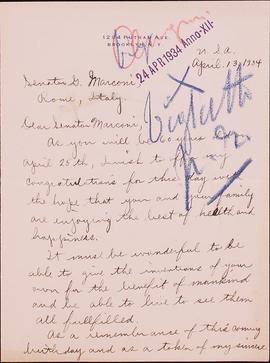 1234 PUTNAM AVE.
BROOKLYN, N.Y.
U.S.A.
April, 13, 1934
24 APR 1934 Anno XII
Senatore G. Marconi,
Rome, Italy.
Dear Senator Marconi,
As you will be 60 years on
April 25th, I wish to my
congratulations for this day with
the hope that you and your family
are enjoying the best of health and
happiness.
It must be wonderful to be
able to give the inventions of your
own for the benefit of mankind
and be able to live to see them
all fullfilled.
As a remembrance of this coming
birthday and as a token of my sincere